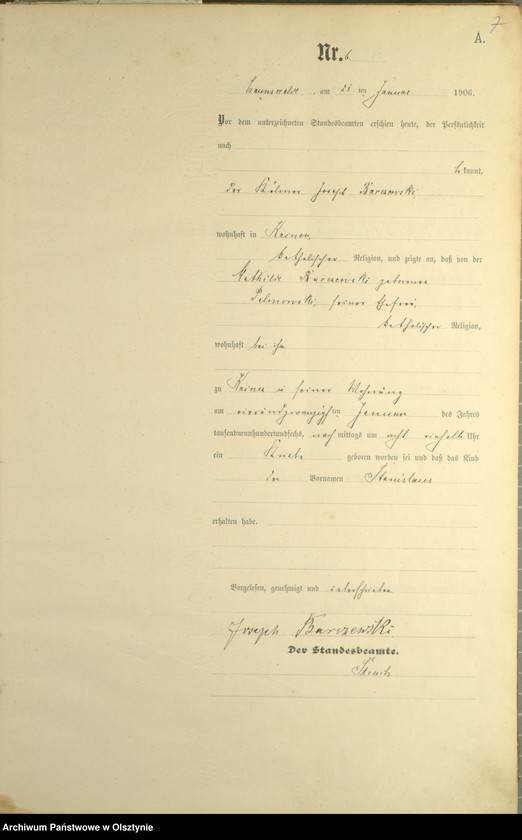 7
A.
Nr. 6
Braunswalde, am 25 ten Januar 1906.
Vor dem unterzeichneten Standesbeamten erschien heute, der Persönlichkeit
nach
bekannt,
der Joseph
wohnhaft in
katholischer Religion, und zeigte an, daß von der
Mathilde geborenen
seiner Ehefrau,
katholischer Religion,
wohnhaft bei ihm
zu in seiner Wohnung
am vierundzwanzigsten Januar des Jahres
tausendneunhundertundsechs, nachmittags um acht einhalb Uhr
ein Knabe geboren worden sei und daß das Kind
den Vornamen Stanislaus
erhalten habe.
Vorgelesen, genehmigt und unterschrieben
Joseph Barczewski
Der Standesbeamte.
Archiwum Państwowe w Olsztynie